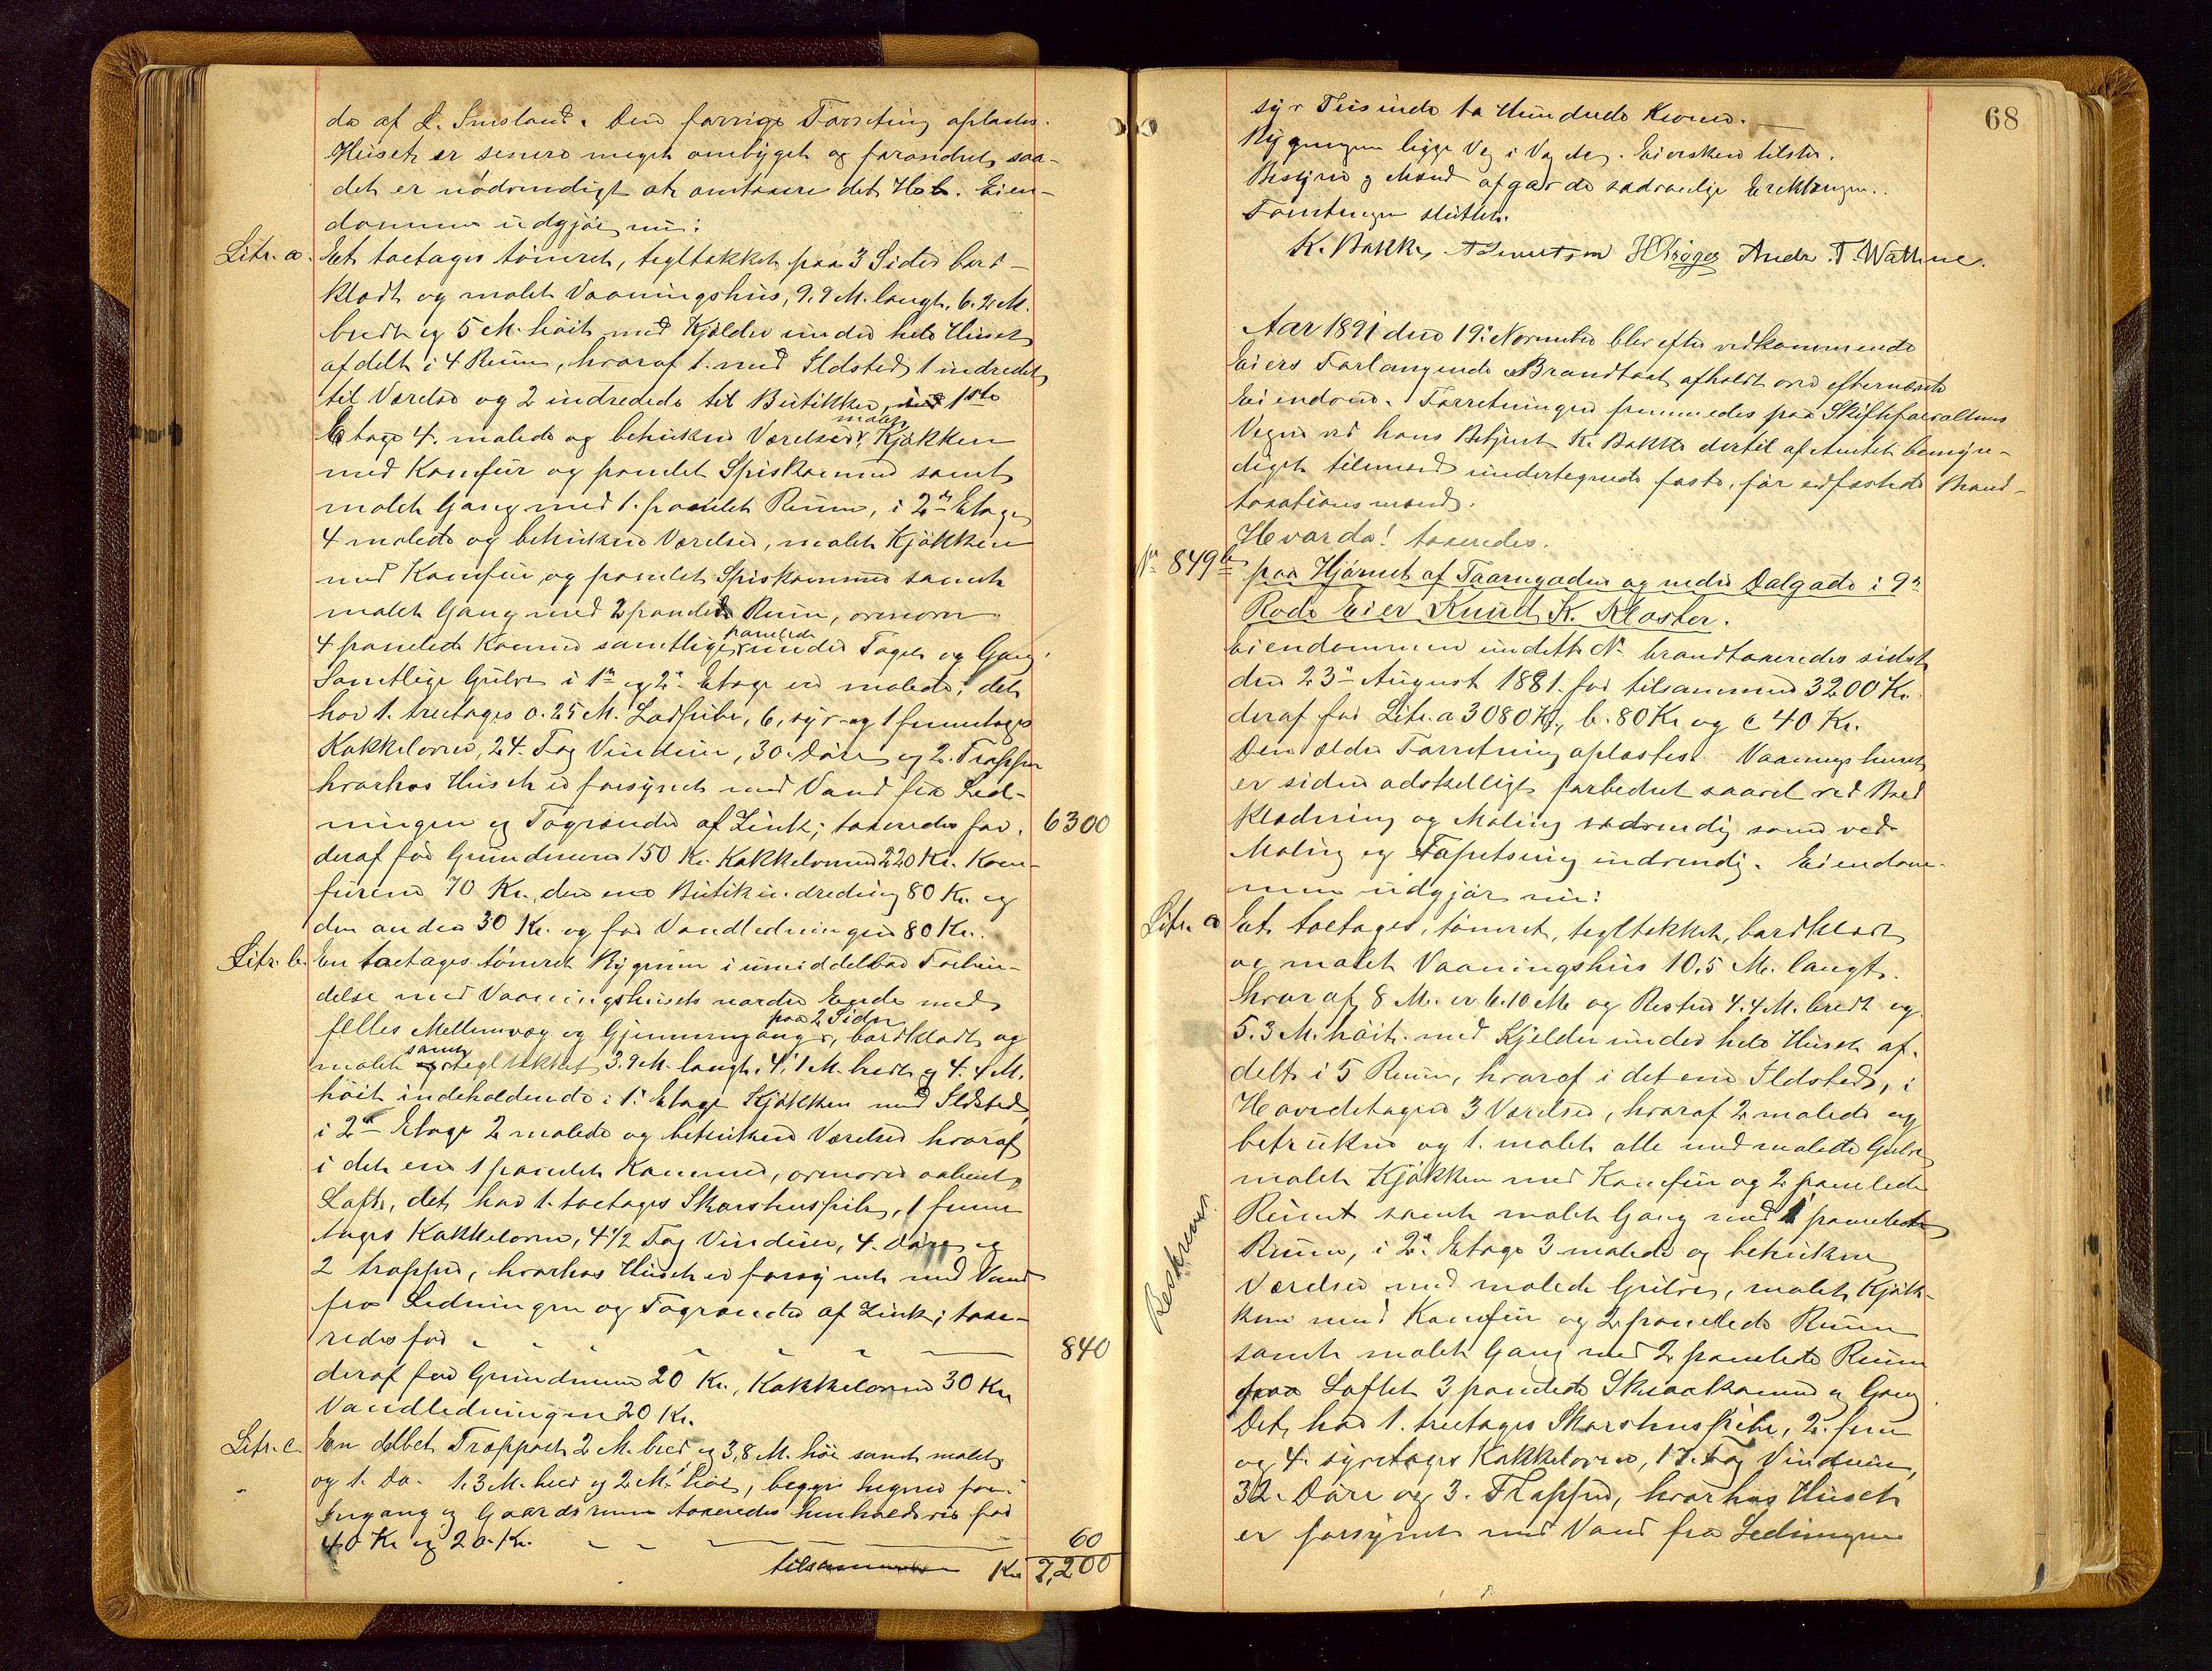 de af L. Smsland. Den forrige Forretning oplæstes.
Huset er senere meget ombygget og forandret, saa-
det er nødvendigt at omtaxere det Hele. Eien-
dommen udgjør nu:
Litr. a. Et toetages tømret, tegltækket paa 3 Sider bord-
klædt og malet Vaaningshus, 9,9 M. langt, 6,2 M.
bredt og 5 M. høit med Kjelder under hele Huset
afdelt i 4 Rum, hvoraf 1 med Ildsted, 1 indredet
til Værelse og 2 indredede til Butikker, i 1ste
Etage 4 malede og betrukne Værelser, malet Kjøkken
med Komfur og panelet Spiskammer samt
malet Gang med 1 panelet Rum, i 2den Etage
4 malede og betrukne Værelser, malet Kjøkken
med Komfur og panelet Spiskammer samt
malet Gang med 2 panelede Rum, ovenover
4 panelede Kamre samtlige panelede under Taget og Gang.
Samtlige Gulve i 1ste og 2den Etage er malede; det
har 1 treetages 0.25 M. Lodpibe, 6 fyr- og 1 femetages
Kakkelovne, 24 Fag Vinduer, 30 Døre og 2 Trapper
hvorhos Huset er forsynet med Vand fra Led-
ningen og Tagrender af Zink; taxeredes for. 6300
deraf for Grundmuren 150 Kr. Kakkelovnene 220 Kr. Kom-
furene 70 Kr., den ene Butikindredning 80 Kr. og
den anden 30 Kr. og for Vandledningen 80 Kr.
Litr. b. En toetages tømret Bygning i umiddelbar Forbin-
delse med Vaaningshusets nordre Ende med
fælles Mellemvæg og Gjennemgang, paa 2 Sider bordklædt og
malet samt tegltækket 3.9 M. langt, 4,1 M. bredt og 4.4 M.
høit indeholdende i 1ste Etage Kjøkken med Ildsted,
i 2den Etage 2 malede og betrukne Værelser hvoraf
i det ene 1 panelet Kammer, ovenover aabent
Loft, det har 1 toetages Skorstenspibe, 1 fem-
etages Kakkelovn, 4 1/2 Fag Vinduer, 4 Døre og
2 Trapper, hvorhos Huset er forsynet med Vand
fra Ledningen og Tagrender af Zink; taxe-
redes for 840
deraf for Grundmuren 20 Kr., Kakkelovnen 30 Kr.
Vandledningen 20 Kr.
Litr. c. En dobbelt Trappe 2 M. bred og 3,8 M. høi samt malet
og 1 Do. 1.3 M. bred og 2 M. høi, begge hegner for
Indgang og Gaardsrum taxeredes henholdsvis for
40 Kr. og 20 Kr. 60
tilsammen Kr 7,200
68
syv Tusinde to Hundrede Kroner.
Bygningen ligger Væg i Væg. Eiersken tilstede.
Bestyrer og Mænd afgav de sædvanlige Erklæringer.
Forretningen sluttet.
K. Bakke H Krøger Andr. T. Wathne.
Aar 1891 den 19de November blev efter vedkommende
Eiers Forlangende Brandtaxt afholdt over efternævnte
Eiendom. Forretningen fremmedes paa Skifteforvalterens
Vegne ved hans Betjent K. Bakke dertil af Amtet bemyn-
diget tilmed undertegnede faste, før edfæstede Brand-
taxationsmænd.
Hvorda! taxeredes.
No. 849b paa Hjørnet af Taarngaden og nedre Dalgade i 9de
Rode Eier Knud K. Kloster.
Eiendommen under dette No. brandtaxeredes sidst
den 23de August 1881 for tilsammen 3200 Kr.
deraf for Litr. a 3080 Kr., b. 80 Kr og c 40 Kr.
Den ældre Forretning oplæstes. Vaaningshuset
er siden adskilligt forbedret saavel ved Bord
klædning og Maling udvendig som ved
Maling og Tapetsering indvendig. Eiendom-
men udgjør nu:
Litr. a Et toetages, tømret, tegltækket, bordklædt
og malet Vaaningshus 10,5 M. langt.
hvoraf 8 M. er 6.10 M. og Resten 4.4 M. bredt og
5.3 M. høit med Kjelder under hele Huset af-
delt i 5 Rum, hvoraf i det ene Ildsted, i
Hovedetagen 3 Værelser, hvoraf 2 malede og
betrukne og 1 malet alle med malede Gulve
malet Kjøkken med Komfur og 2 panelede
Rum samt malet Gang med 1 panelede
Rum, i 2den Etage 3 malede og betrukne
Værelser med malede Gulve, malet Kjøk-
ken med Komfur og 2 panelede Rum
samt malet Gang med 2 panelede Rum
paa Loftet 3 panelede Skraakamre og Gang
Det har 1 treetages Skorstenspibe, 2 fem
og 4 fyretages Kakkelovne, 17 Fag Vinduer,
32 Døre og 3 Trapper, hvorhos Huset
er forsynet med Vand fra Ledningen
Beskrevet